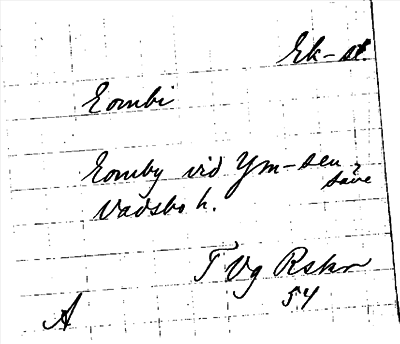 Ek-st.
Eombi
Eomby vid Ym-sen,
Vadsbo h.
T Vg Rskr
54
A